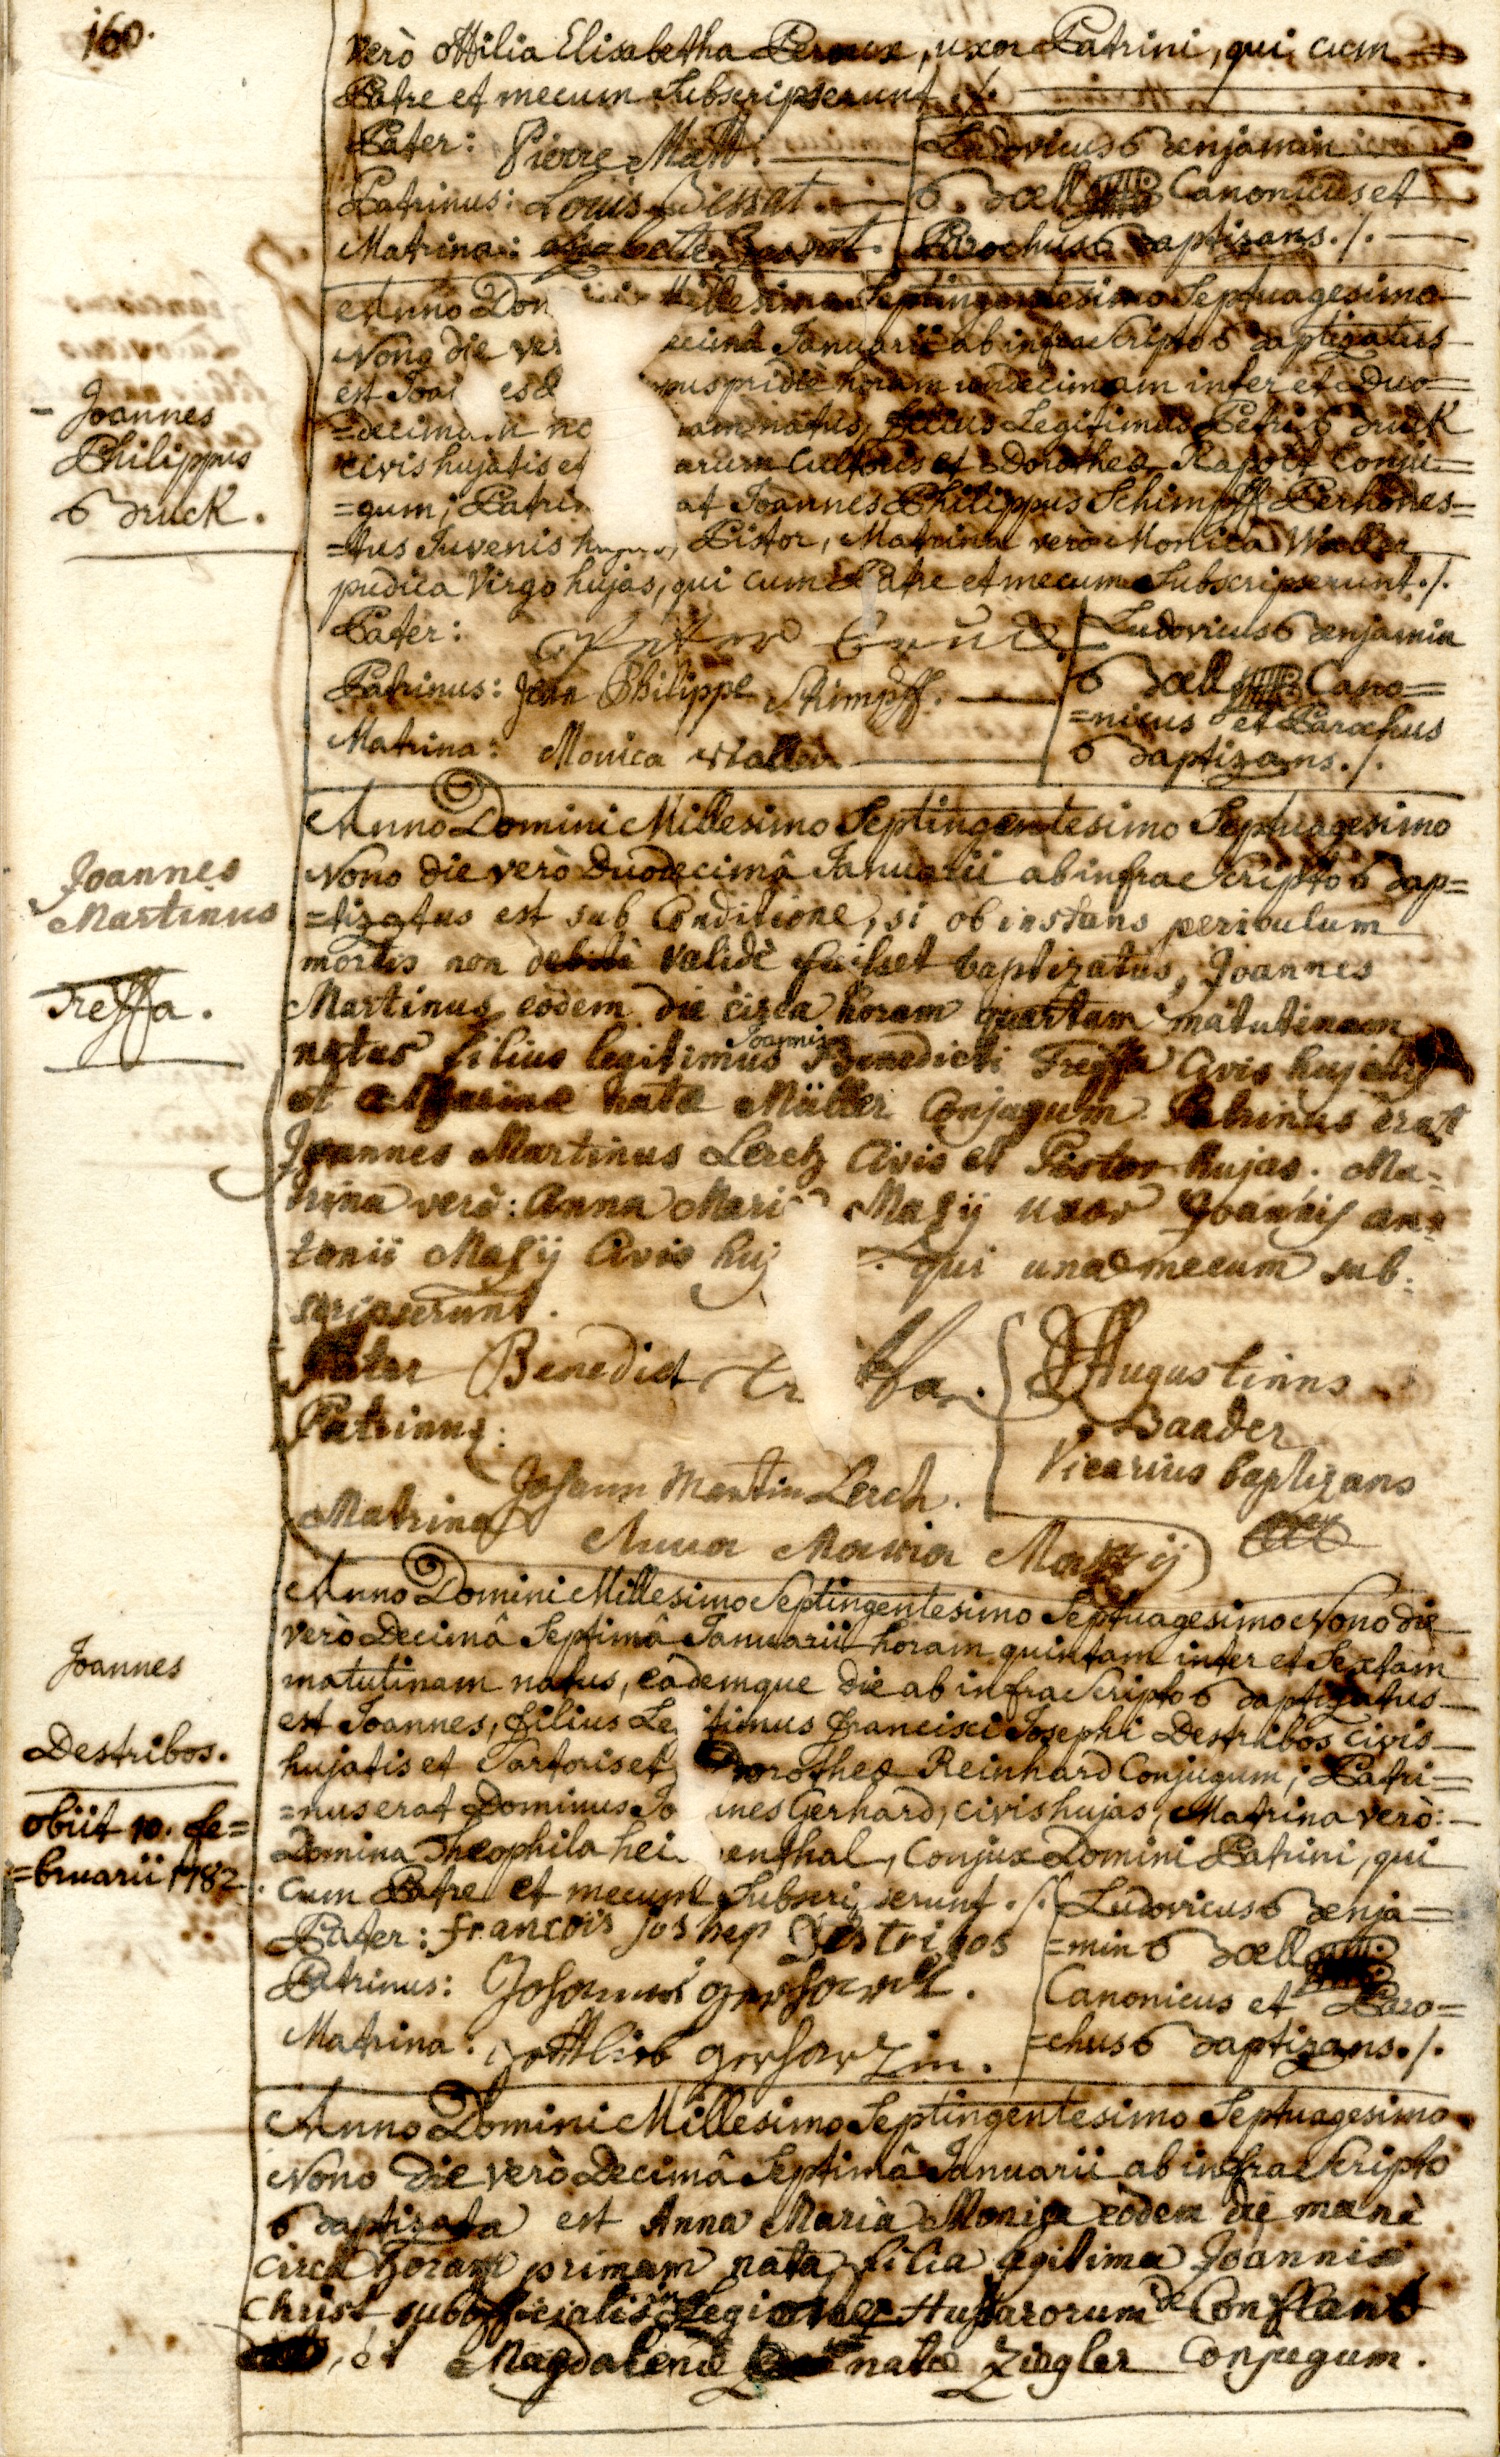 160.
verò Ottilia Elisabetha Peroux, uxor Patrini, qui cum
Patre et mecum Subscripserunt ./.
Pater: Pierre Matt.
Patrinus: Louis
Matrina:
Ludovicus Benjamin
Boell Canonicus et
Parochus Baptizans ./.
Joannes
Philippus
Bruck.
Anno Dom Millesimo Septingentesimo Septuagesimo
Nono die ver ecimâ Januarii ab infra Scripto Baptizatus
est Joan es pus pridie horam undecimam inter et Duo=
=decimam no am natus, filius Legitimus Petri Bruck
civis hujatis et arum Cultoris et Dorotheæ Rapolt Conju=
=gum; Patrin at Joannes Philippus Schimpff Perhones=
=tus Juvenis hujas, Pistor, Matrina verò Monica Waller
pudica Virgo hujas, qui cum Patre et mecum Subscripserunt ./.
Pater: Petter Bruck
Patrinus: Jean Philippe Schimpff.
Matrina: Monica Waller
Ludovicus Benjamin
Boell Cano=
=nicus et Parochus
Baptizans ./.
Joannes
Martinus
Treffa.
Anno Domini Millesimo Septingentesimo Septuagesimo
Nono die verò Duodecimâ Januarii ab infra Scripto Bap=
=tizatus est sub Conditione, si ob instans periculum
mortis non debitè validè fuisset baptizatus, Joannes
Martinus eôdem die circa horam quartam matutinam
natus filius legitimus Joannis Benedicti Treffa Civis hujatis
et Catharinæ natæ Müller Conjugum. Patrinus erat
Joannes Martinus Lerch Civis et Pistor hujas. Ma=
trina verò: Anna Mari Masij uxor Joannis An=
tonii Masij Civis huj qui una mecum sub.
scripserunt.
Pater Benedict Tr ffa.
Patrinus:
Johann Martin Lerch.
Matrina
Anna Maria Massij
Augustinus
Baader
Vicarius baptizans
Joannes
Destribos.
obiit 10. fe=
=bruarii 1782.
Anno Domini Millesimo Septingentesimo Septuagesimo Nono die
verò Decimâ Septimâ Januarii horam quintam inter et Sextam
matutinam natus, eâdemque die ab infra Scripto Baptizatus
est Joannes, filius Le itimus Francisci Josephi Destribos civis
hujatis et Sartoris et Dorotheæ Reinhard Conjugum; Patri=
=nus erat Dominus Jo nnes Gerhard, civis hujas, Matrina verò:
Domina Theophila hei enthal, Conjux Domini Patrini, qui
cum Patre et mecum Subscri serunt ./.
Pater: francois joshep Destribos
Patrinus: Johannes gerhardt.
Matrina: gottlieb gerhardzin.
Ludovicus Benja=
=min Boell
Canonicus et Paro=
=chus Baptizans ./.
Anno Domini Millesimo Septingentesimo Septuagesimo
Nono die verò Decimâ Septimâ Januarii ab infra Scripto
Baptizata est Anna Maria Monica eôdem die manè
circa horam primam nata, filia legitima Joannis
Christ, subofficialis in Legione Hussarorum de Conflans
, et Magdalenæ natæ Ziegler Conjugum.